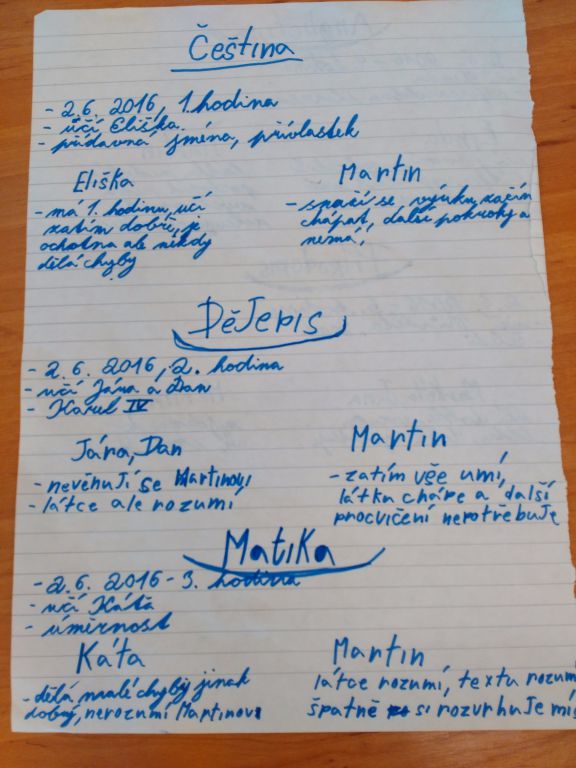 Čeština
- 2.6. 2016, 1. hodina
- učí Eliška
- přídavná jména, přívlastek
Eliška
- má 1. hodinu, učí
zatím dobře, je
ochotna ale někdy
dělá chyby
Martin
- snaží se, výuku začím
chápat, další pokroky a
nemá,
Dějepis
- 2.6. 2016, 2. hodina
- učí Jára a Dan
- Karel IV
Jára, Dan
- nevěnují se Martinovi
- látce ale rozumí
Martin
- zatím vše umí,
látku chápe a další
procvičení nepotřebuje
Matika
- 2.6. 2016 - 3. hodina
- učí Káťa
- úměrnost
Káťa
- dělá malé chyby jinak
dobrý, nerozumí Martinovi
Martin
látce rozumí, textu rozum
špatně si rozvrhuje mí